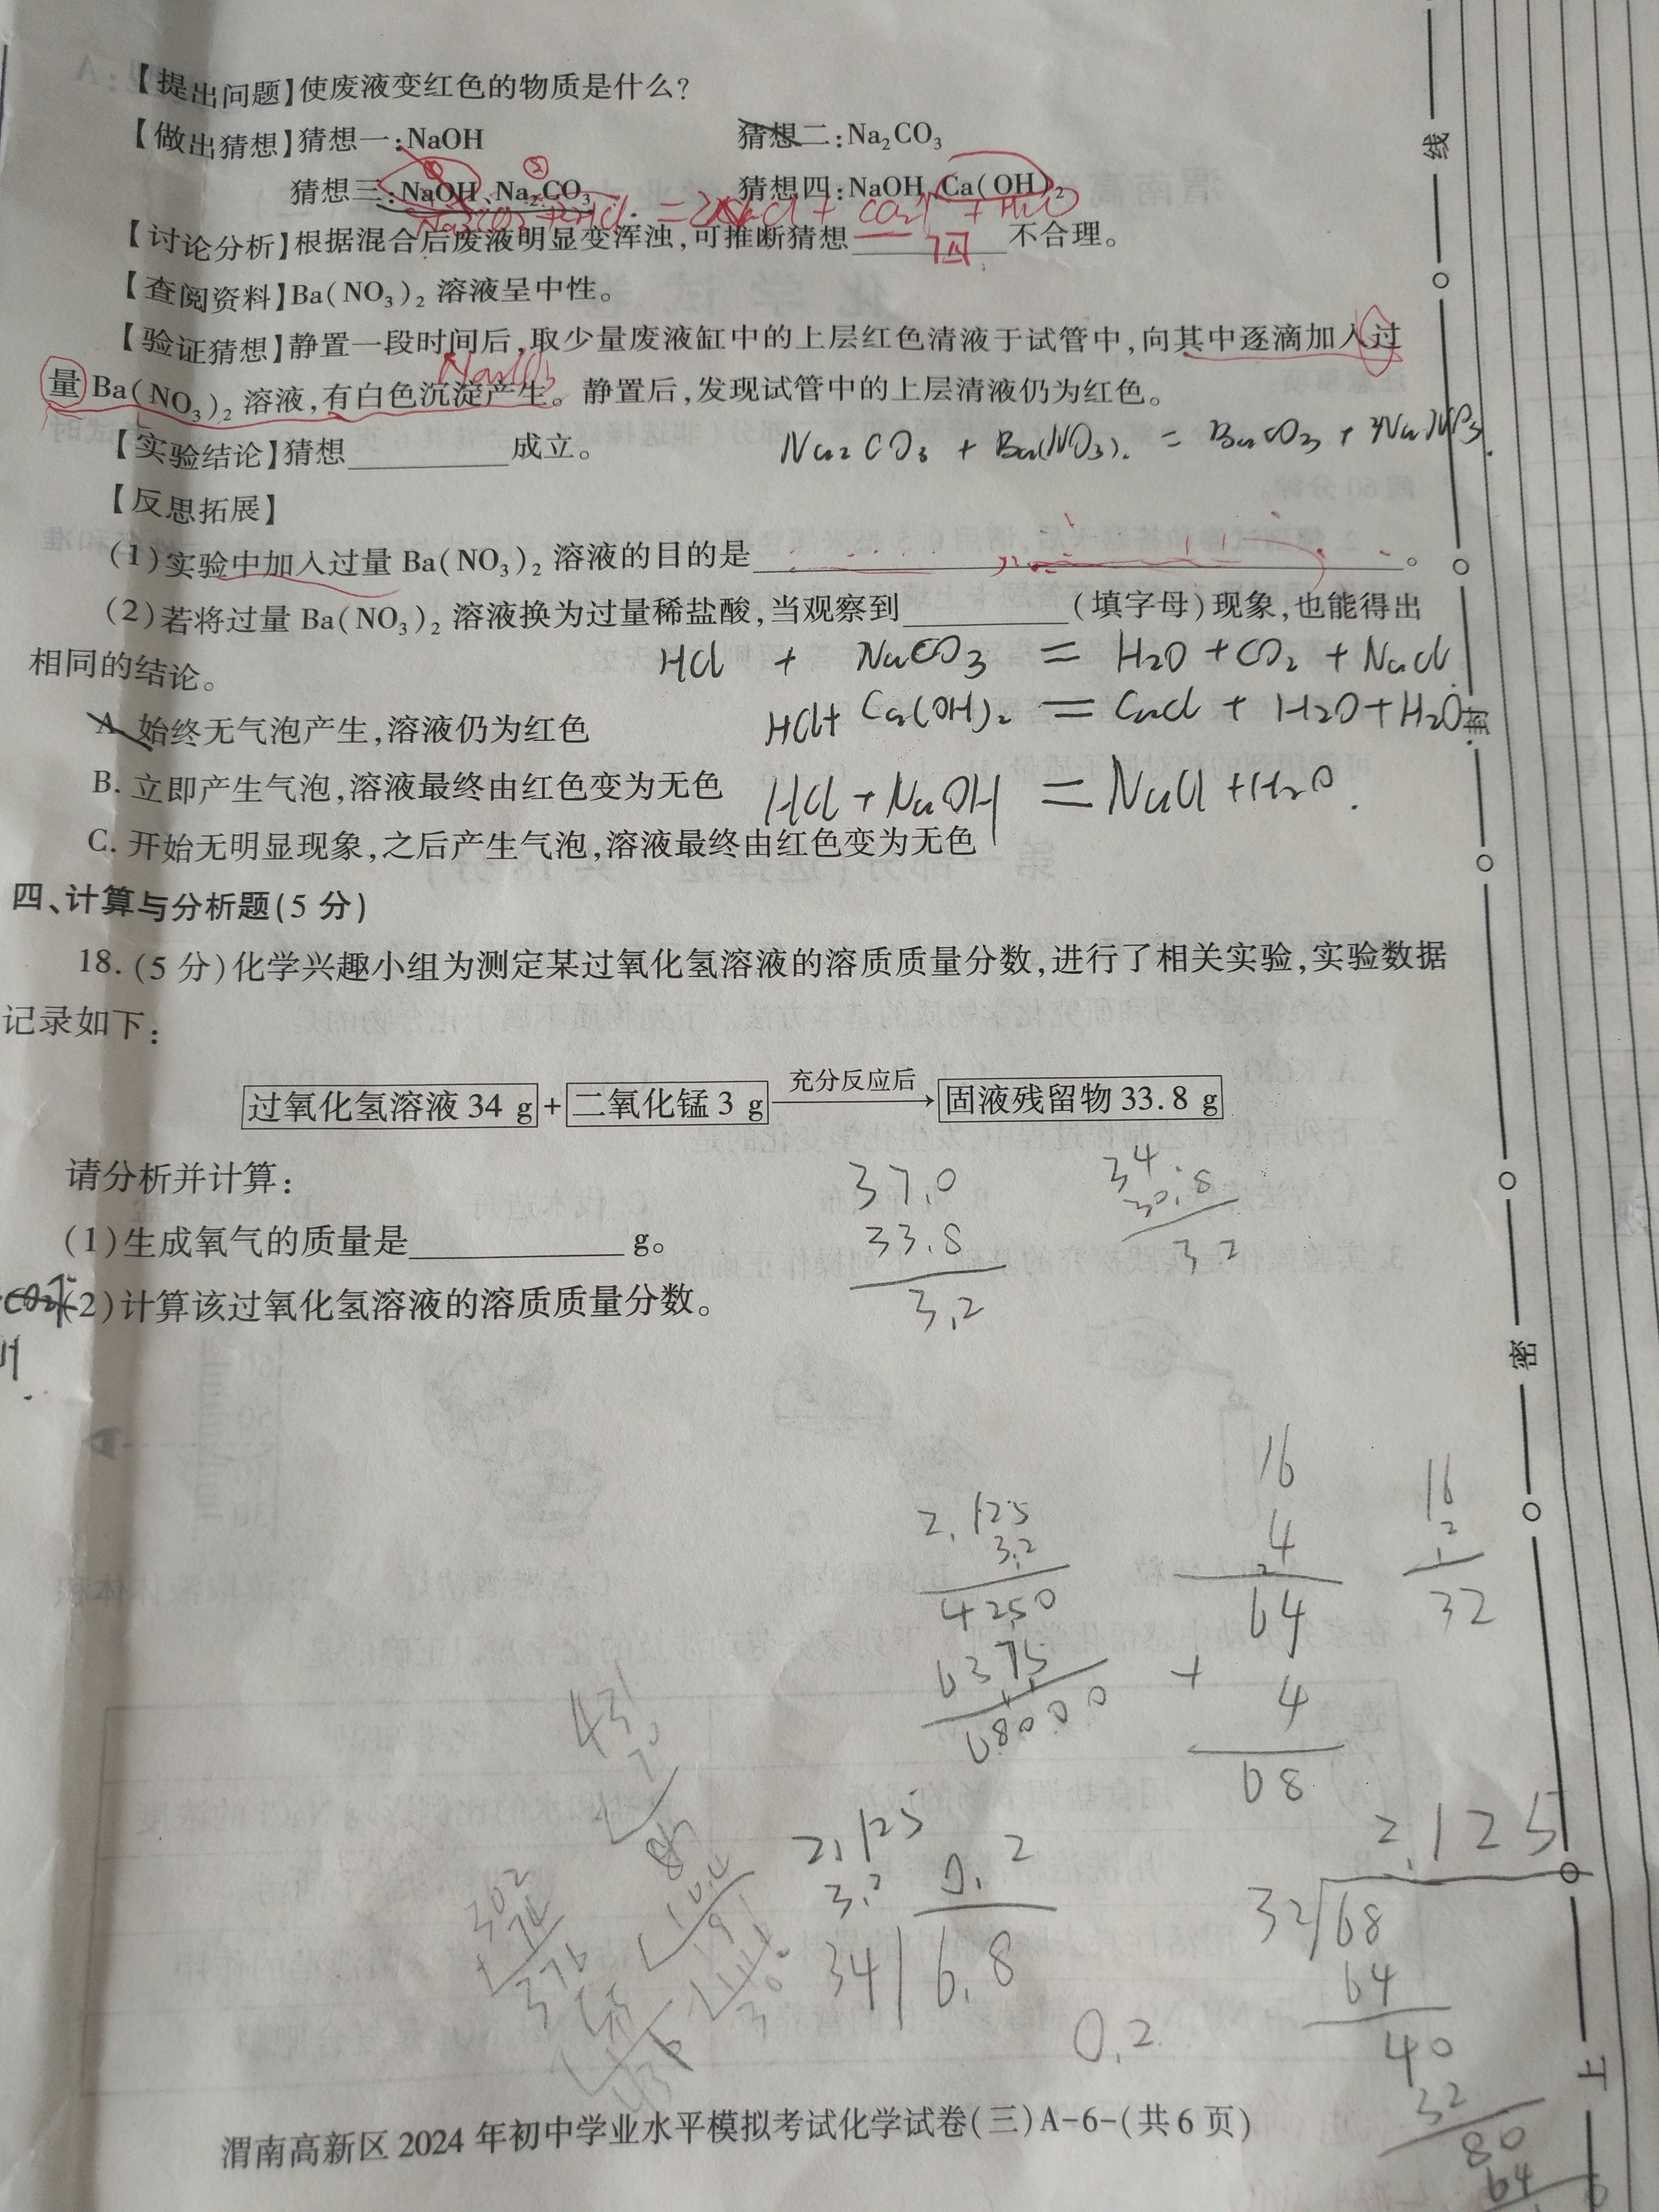 【提出问题】使废液变红色的物质是什么?
【做出猜想】猜想一:NaOH 猜想二:Na₂CO₃
① ②
猜想三:NaOH、Na₂CO₃ 猜想四:NaOH、Ca(OH)₂
Na₂CO₃+2HCl = 2NaCl + CO₂↑ + H₂O
【讨论分析】根据混合后废液明显变浑浊,可推断猜想 四 不合理。
【查阅资料】Ba(NO₃)₂ 溶液呈中性。
【验证猜想】静置一段时间后,取少量废液缸中的上层红色清液于试管中,向其中逐滴加入过
量 Ba(NO₃)₂ 溶液,有白色沉淀产生。静置后,发现试管中的上层清液仍为红色。
【实验结论】猜想 成立。
Na₂CO₃ + Ba(NO₃)₂ = BaCO₃ + 2NaNO₃
【反思拓展】
(1)实验中加入过量 Ba(NO₃)₂ 溶液的目的是 。
(2)若将过量 Ba(NO₃)₂ 溶液换为过量稀盐酸,当观察到 (填字母)现象,也能得出
相同的结论。
HCl + NaCO₃ = H₂O + CO₂ + NaCl
A. 始终无气泡产生,溶液仍为红色
HCl + Ca(OH)₂ = CaCl + H₂O + H₂O
B. 立即产生气泡,溶液最终由红色变为无色
HCl + NaOH = NaCl + H₂O.
C. 开始无明显现象,之后产生气泡,溶液最终由红色变为无色
四、计算与分析题(5 分)
18. (5 分)化学兴趣小组为测定某过氧化氢溶液的溶质质量分数,进行了相关实验,实验数据
记录如下:
过氧化氢溶液 34 g + 二氧化锰 3 g 充分反应后 固液残留物 33.8 g
请分析并计算:
(1)生成氧气的质量是 g。
(2)计算该过氧化氢溶液的溶质质量分数。
37.0
33.8
3.2
34
30.8
3 2
2.125
3.2
4250
6375
6.8000
16
4
64
+ 4
68
16
2
32
2.125
3.2
0.2
34 6.8
0.2
2.125
32 68
64
40
32
80
64
302
74
376
渭南高新区 2024 年初中学业水平模拟考试化学试卷(三)A-6-(共 6 页)
线
封
密
上